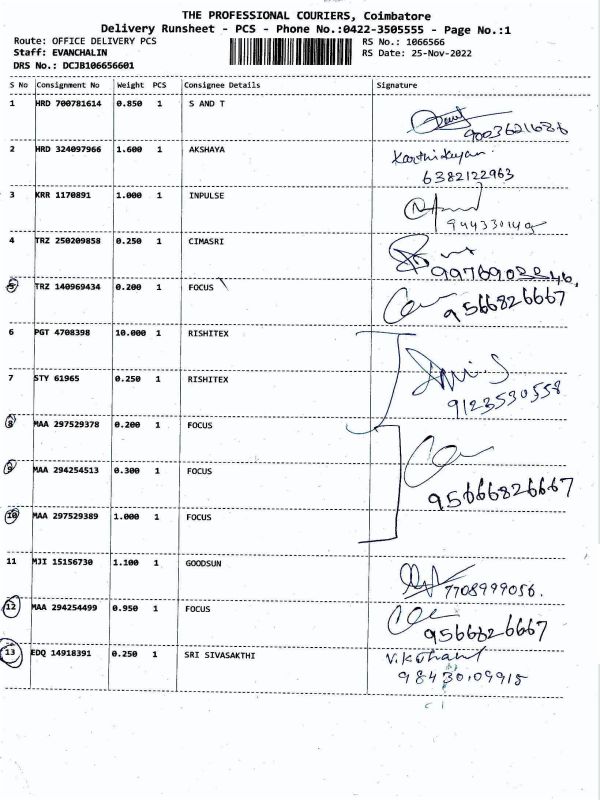 THE PROFESSIONAL COURIERS, Coimbatore
Delivery Runsheet - PCS - Phone No.:0422-3505555 - Page No.:1
Route: OFFICE DELIVERY PCS RS No.: 1066566
Staff: EVANCHALIN RS Date: 25-Nov-2022
DRS No.: DCJB106656601
S No Consignment No Weight PCS Consignee Details Signature
1 HRD 700781614 0.850 1 S AND T
9003621686
2 HRD 324097966 1.600 1 AKSHAYA Karthikeyan
6382122963
3 KRR 1170891 1.000 1 INPULSE
4 TRZ 250209858 0.250 1 CIMASRI
5 TRZ 140969434 0.200 1 FOCUS
9566826667
6 PGT 4708398 10.000 1 RISHITEX
7 STY 61965 0.250 1 RISHITEX
9123530558
8 MAA 297529378 0.200 1 FOCUS
9 MAA 294254513 0.300 1 FOCUS
9566826667
10 MAA 297529389 1.000 1 FOCUS
11 MJI 15156730 1.100 1 GOODSUN
7708999056.
12 MAA 294254499 0.950 1 FOCUS
9566826667
13 EDQ 14918391 0.250 1 SRI SIVASAKTHI
9843009915